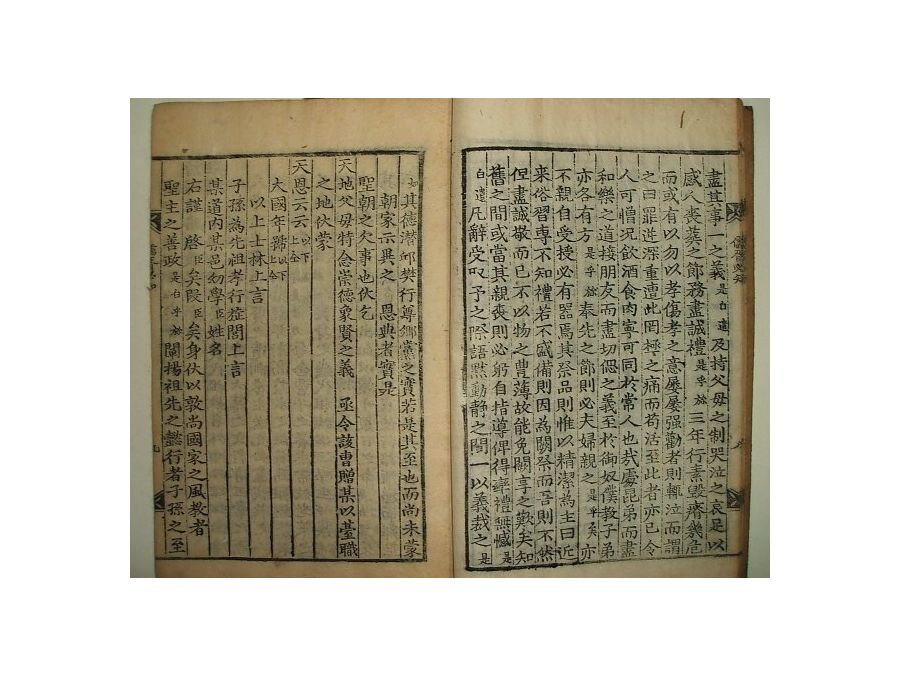 儒胥必知
盡其事一之義是白遣及持父母之制哭泣之哀足以
感人喪葬之節務盡誠禮是乎旀三年行素毀瘠幾危
而或有以勿以孝傷孝之意屢屢强勸者則輒泣而謂
之曰罪逆深重遭此罔極之痛而苟活至此者亦已令
人可憎况飮酒食肉寧可同於常人也哉處昆弟而盡
和樂之道接朋友而盡切偲之義至於御奴僕敎子弟
亦各有方是乎旀奉先之節則必夫婦親之是乎矣亦
不親自受授必有器焉其祭品則惟以精潔為主曰近
來俗習專不知禮若不盛備則因為闕祭而吾則不然
但盡誠敬而已不以物之豊薄故能免闕享之歎矣知
舊之間或當其親喪則必躬自指導俾得無憾是
白遣凡辭受取予之際語默動靜之間一以義裁之是
如其德潜邱樊行尊鄕黨之實若是其至也而尚未蒙
朝家示異之 恩典者實是
聖朝之欠事也伏乞
天地父母特念崇德象賢之義 亟令該曺贈某以臺職
之地伏蒙
天恩云云以下上仝
大國年號以下上仝
以上士林上言
子孫為先祖孝行旌閭上言
某道內某邑幼學臣姓名
右謹 啓臣矣段臣矣身伏以敦尚國家之風敎者
聖主之善政是白乎旀闡揚祖先之懿行者子孫之至
九